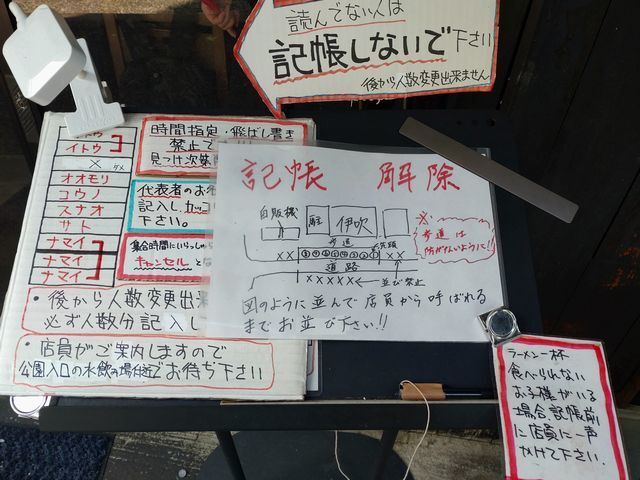 読んでない人は
記帳しないで下さい
後から人数変更出来ません
イトウ
×
ダメ
オオモリ
コウノ
スナオ
サト
ナマイ
ナマイ
ナマイ
時間指定・飛ばし書き
禁止で
見つけ次第
代表者のお
記入しカッコ
下さい。
集合時間にいらっしゃ
キャンセルと
・後から人数変更出来
必ず人数分記入し
・店員がご案内しますので
公園入口の水飲み場付近でお待ち下さい
記帳 解除
自販機
駐
伊吹
歩道
××
××
先頭
道路
×××××
←並び禁止
※
歩道は
防がないように!!
図のように並んで店員から呼ばれる
までお並び下さい!!
ラーメン一杯
食べられない
お子様がいる
場合、記帳前
に店員に一声
かけて下さい.